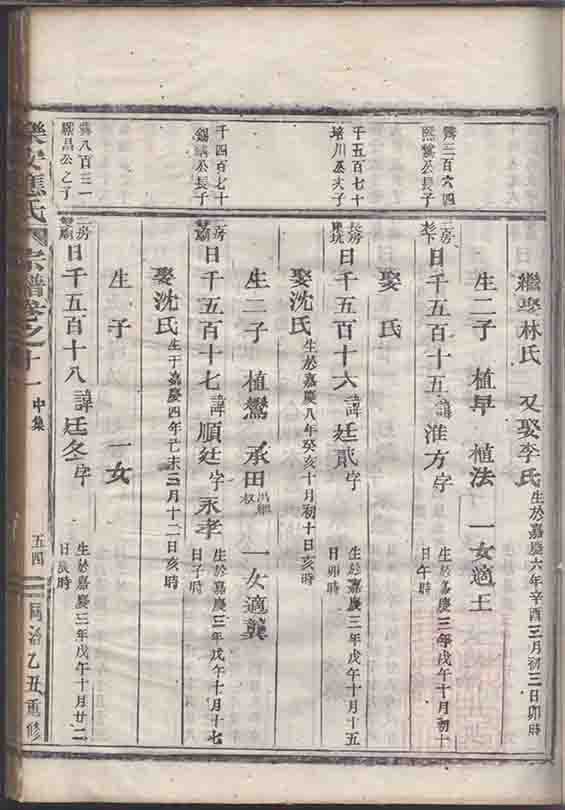 繼娶林氏 又娶李氏 生於嘉慶六年辛酉三月初三日卯時
生二子 植早 植法 一女適王
三百六四
熙 公長子
二房
日千五百十五諱淮方字 生於嘉慶三年戊午十月初十
日午時
娶 氏
千五百七十
培川公次子
長房
日千五百十六諱廷貳字 生於嘉慶三年戊午十月十五
日卯時
娶沈氏 生於嘉慶八年癸亥十月初十日亥時
生二子 植鸞 承田 一女適龔
千四百七十
公長子
二房
日千五百十七諱順廷字永孝 生於嘉慶三年戊午十月十七
日子時
娶沈氏 生于嘉慶四年己未三月十二日亥時
生 子 一女
八百三一
昌公之子
二房
日千五百十八諱廷冬字 生於嘉慶三年戊午十月廿二
日辰時
樂安應氏宗譜卷之十一 中集 五四 同治乙丑重修